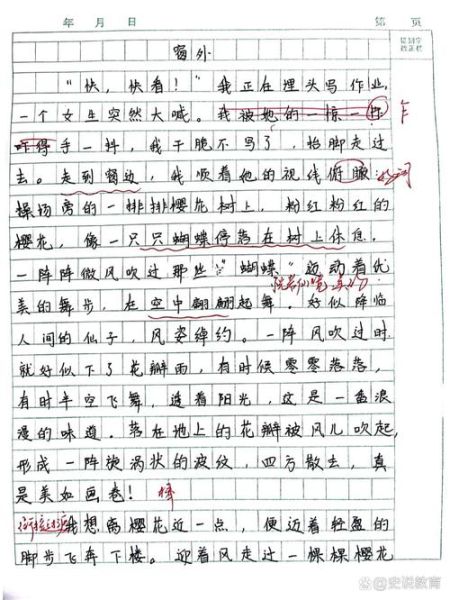 年 月 日 第 页
窗外
“快，快看！”我正在埋头写作业，
一个女生突然大喊。我被她的一惊一乍
咋得手一抖，我干脆不写了，抬脚走过
去。走到窗边，我顺着他的视线俯瞰：
操场旁的一排排樱花树上，粉红粉红的
樱花，像一只只蝴蝶停落在树上休息。
一阵阵微风吹过那些“蝴蝶”迈动着优
美的舞步，在空中翩翩起舞。好似降临
人间的仙子，风姿绰约。一阵风吹过时
就好似下了花瓣雨，有时候零零落落，
有时半空飞舞，逢着阳光，这是一番浪
漫的味道。落在地上的花瓣被风儿吹起，
形成一阵旋涡状的波纹，四方散去，真
是美如画卷！棒
我想离樱花近一点，便迈着轻盈的
脚步飞奔下楼。迎着风走过一棵棵樱花
@史说教育